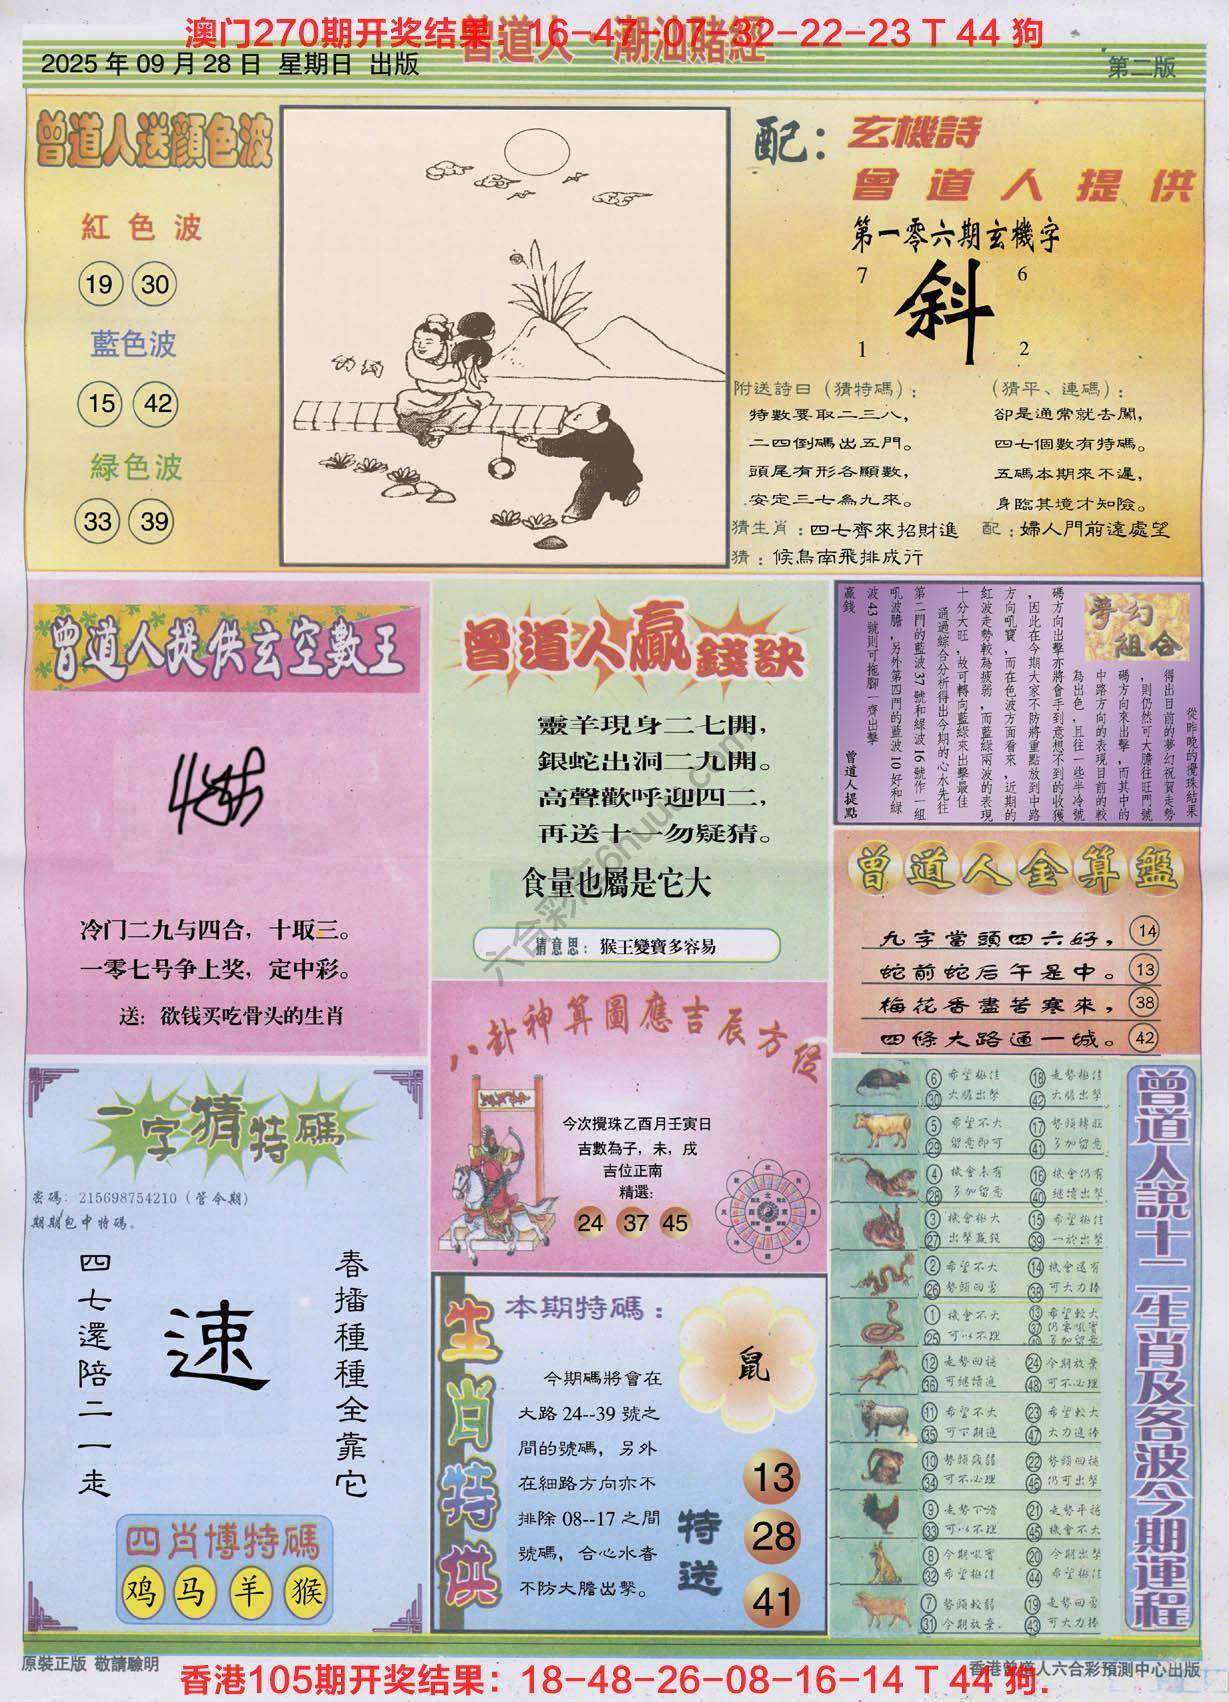 澳门270期开奖结果：16-47-07-32-22-23 T 44 狗
曾道人 潮汕賭經
2025 年 09 月 28 日  星期日  出版
第二版
曾道人送顏色波
紅色波
19 30
藍色波
15 42
緑色波
33 39
配：玄機詩
曾道人提供
第一零六期玄機字
7 6
斜
1 2
附送詩曰（猜特碼）：
特數要取二三八，
二四倒碼出五門。
頭尾有形各顯數，
安定三七為九來。
（猜平、連碼）：
卻是通常就去闖，
四七個數有特碼。
五碼本期來不遲，
身臨其境才知險。
猜生肖：四七齊來招財進
配：婦人門前遠處望
猜：候鳥南飛排成行
曾道人提供玄空數王
冷门二九与四合，十取三。
一零七号争上奖，定中彩。
送：欲钱买吃骨头的生肖
曾道人贏錢訣
靈羊現身二七開，
銀蛇出洞二九開。
高聲歡呼迎四二，
再送十一勿疑猜。
食量也屬是它大
猜意思：猴王變寶多容易
夢幻組合
從昨晚的攪珠結果
得出目前的夢幻祝賀走勢
，則仍然可大膽往旺門號
碼方向來出擊，而其中的
中路方向的表現目前的較
為出色，且往一些半冷號
碼方向出擊亦將會手到意想不到的收獲
，因此在今期大家不防將重點放到中路
方向吼寶，而在色波方面看來，近期的
紅波走勢較為疲弱，而藍綠兩波的表現
十分大旺，故可轉向藍綠來出擊最佳
通過綜合分析得出今期的心水先往
第二門的藍波 37 號和綠波 16 號作一組
吼波膽，另外第四門的藍波 10 好和綠
波 43 號則可拖腳一齊出擊
贏錢
曾道人提點
曾道人金算盤
九字當頭四六好，14
蛇前蛇后午是中。13
梅花香盡苦寒來，38
四條大路通一城。42
八卦神算圖應吉辰方位
今次攪珠乙酉月壬寅日
吉數為子，未，戌
吉位正南
精選：
24 37 45
一字猜特碼
密碼：215698754210（管令期）
期期包中特碼。
四七還陪二一走
速
春播種種全靠它
四肖博特碼
鸡 马 羊 猴
生肖特供
本期特碼：
鼠
今期碼將會在
大路 24--39 號之
間的號碼，另外
在細路方向亦不
排除 08--17 之間
號碼，合心水者
不防大膽出擊。
特送
13
28
41
曾道人説十二生肖及各波今期運程
6 希望極佳 18 走勢極佳
30 大膽出擊 42 大膽出擊
5 希望不大 17 勢頭轉旺
29 留意即可 41 多加留意
4 機會未有 16 機會仍有
28 多加留意 40 繼續出擊
3 機會極大 15 希望極佳
27 出擊贏錢 39 一於出擊
2 希望不大 14 機會還有
26 勢頭回落 38 可大力捧
1 機會不大 13 希望較大
25 可以不理 37 仍要吼實
多加留意
12 走勢回穩 24 今期放棄
36 可繼續進 48 可不必理
11 希望不大 23 希望較大
35 可下期進 47 大力進捧
10 勢頭疲弱 22 勢頭回穩
34 可不必理 46 仍可出擊
9 走勢下滑 21 走勢平穩
33 可以不理 45 機會不大
8 今期吼實 20 今期出擊
32 希望極佳 44 希望極佳
7 勢頭較弱 19 走勢回落
31 今期放棄 43 可大力捧
原裝正版 敬請驗明
香港曾道人六合彩預測中心出版
香港105期开奖结果：18-48-26-08-16-14 T 44 狗.